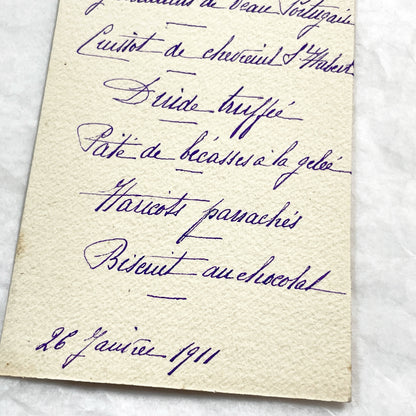 de veau Portugaise
Cuissot de chevreuil St Hubert
Dinde truffée
Pâté de bécasses à la gelée
Haricots panachés
Biscuit au chocolat
26 Janvier 1911